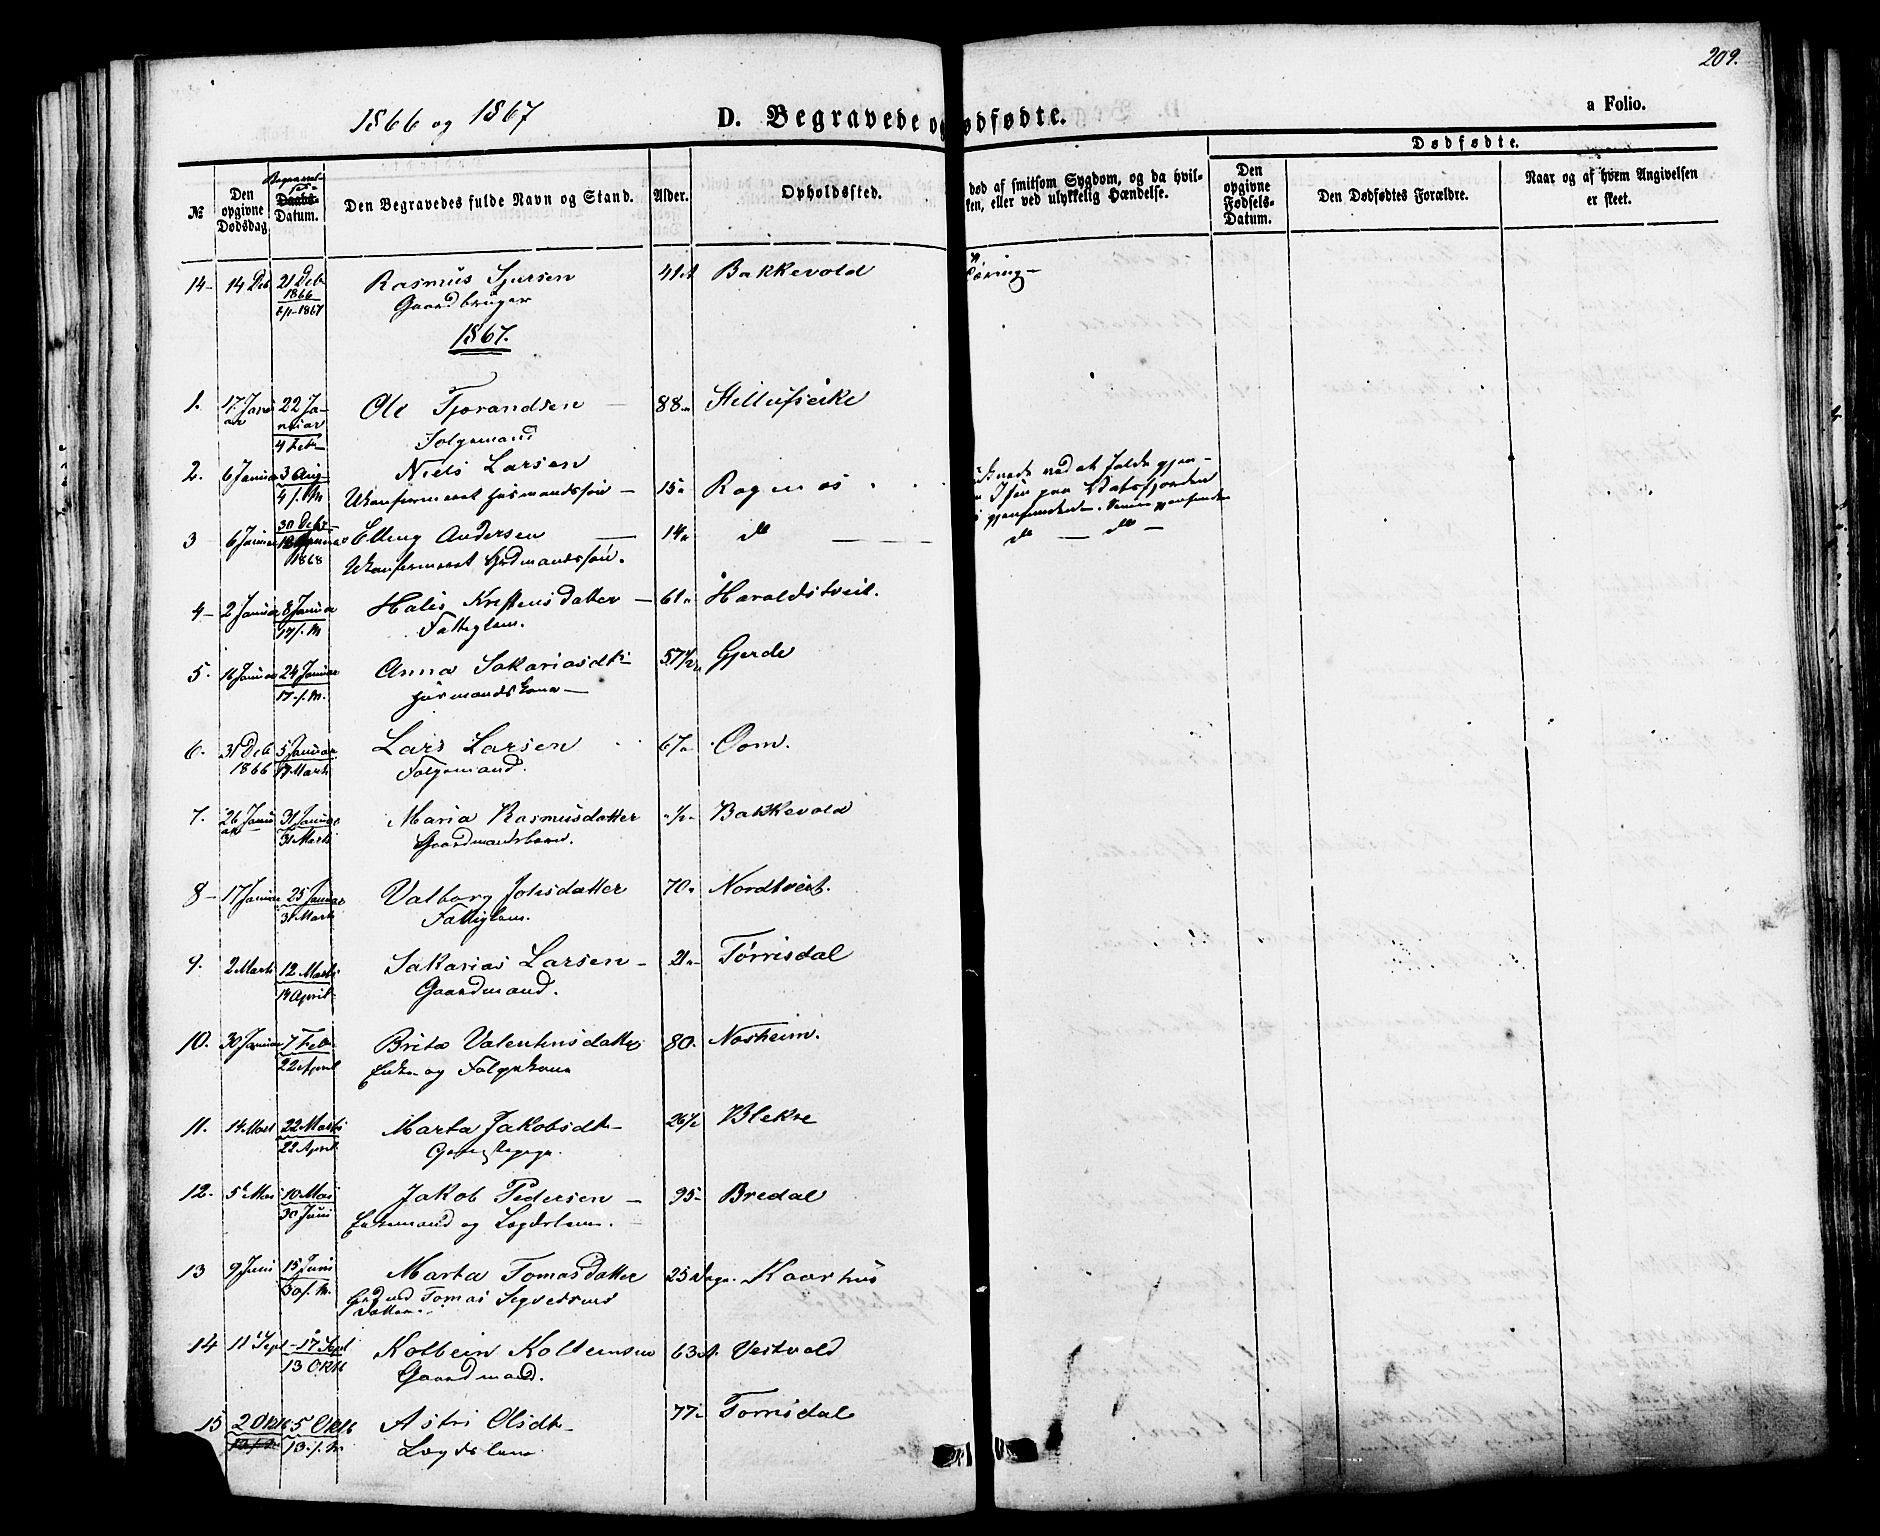 209.
1866 og 1867
D. Begravede og Dødfødte.
a Folio.
№
Den opgivne Dødsdag
Begravel-
ses-
Daabs-
Datum.
Den Begravedes fulde Navn og Stand.
Alder.
Opholdssted.
død af smitsom Sygdom, og da hvil-
ken, eller ved ulykkelig Hændelse.
Dødfødte.
Den opgivne Fødsels-Datum.
Den Dødfødtes Forældre.
Naar og af hvem Angivelsen er skeet.
14 14 Deb 21 Deb 1866 Rasmus Sjursen 41 Bakkevold
1867 Gaardbruger
1867.
1. 17 Januar 22 Januar Ole Tjorandsen 88
4 Feb Folgemand
2. 6 Januar 3 Aug Niels Larsen 15 Ragnøs
4/. M Ukonfirmeret Husmandssøn
ved at falde gjen-
Isen paa Vatsfjorden
3 6 Januar 30 Deb Elling Andersen 14 do do do
1868 Ukonfirmeret
4 2 Januar 8 Januar Halis Kristensdatter 61 Haraldstveit.
17/. M Fattiglem.
5. 16 Januar 24 Januar Anna Sakariasdt 57½ Gjerde
17./. M. Husmandskone
6. 31 Deb 1866 5 Januar Lars Larsen 67 Oom.
17 Marts Folgemand.
7. 26 Januar 31 Januar Maria Rasmusdatter ½ Bakkevold
31 Marts Gaardmandsbarn.
8 17 Januar 25 Januar Valborg Johsdatter 70 Nordtveit.
31 Marts Fattiglem.
9. 2 Marts 12 Marts Sakarias Larsen 21 Tørrisdal
14 April Gaardmand.
10. 30 Januar 7 Feb Brita Valentinsdatter 80. Nosheim.
22 April Enke og Folgekone
11. 14 Mart 22 Marts Marta Jakobsdt 26½ Blekre
22 April
12. 5 Mai 10 Mai Jakob Pedersen 95 Bredal
30 Juni Enkemand og Lægdslem.
13 9 Juni 15 Juni Marta Tomasdatter 25 Dage. Kaarhus
30/. M. Grdmd Tomas Sigvertsens
Datter
14 11 Sept 17 Sept Kolbein Kolbeinsen 63 A. Vestvold
13 Oktb Gaardmand.
15 2 Oktb 5 Oktb Astri Olsdt 77 Torrisdal
13./. M Lægdslem